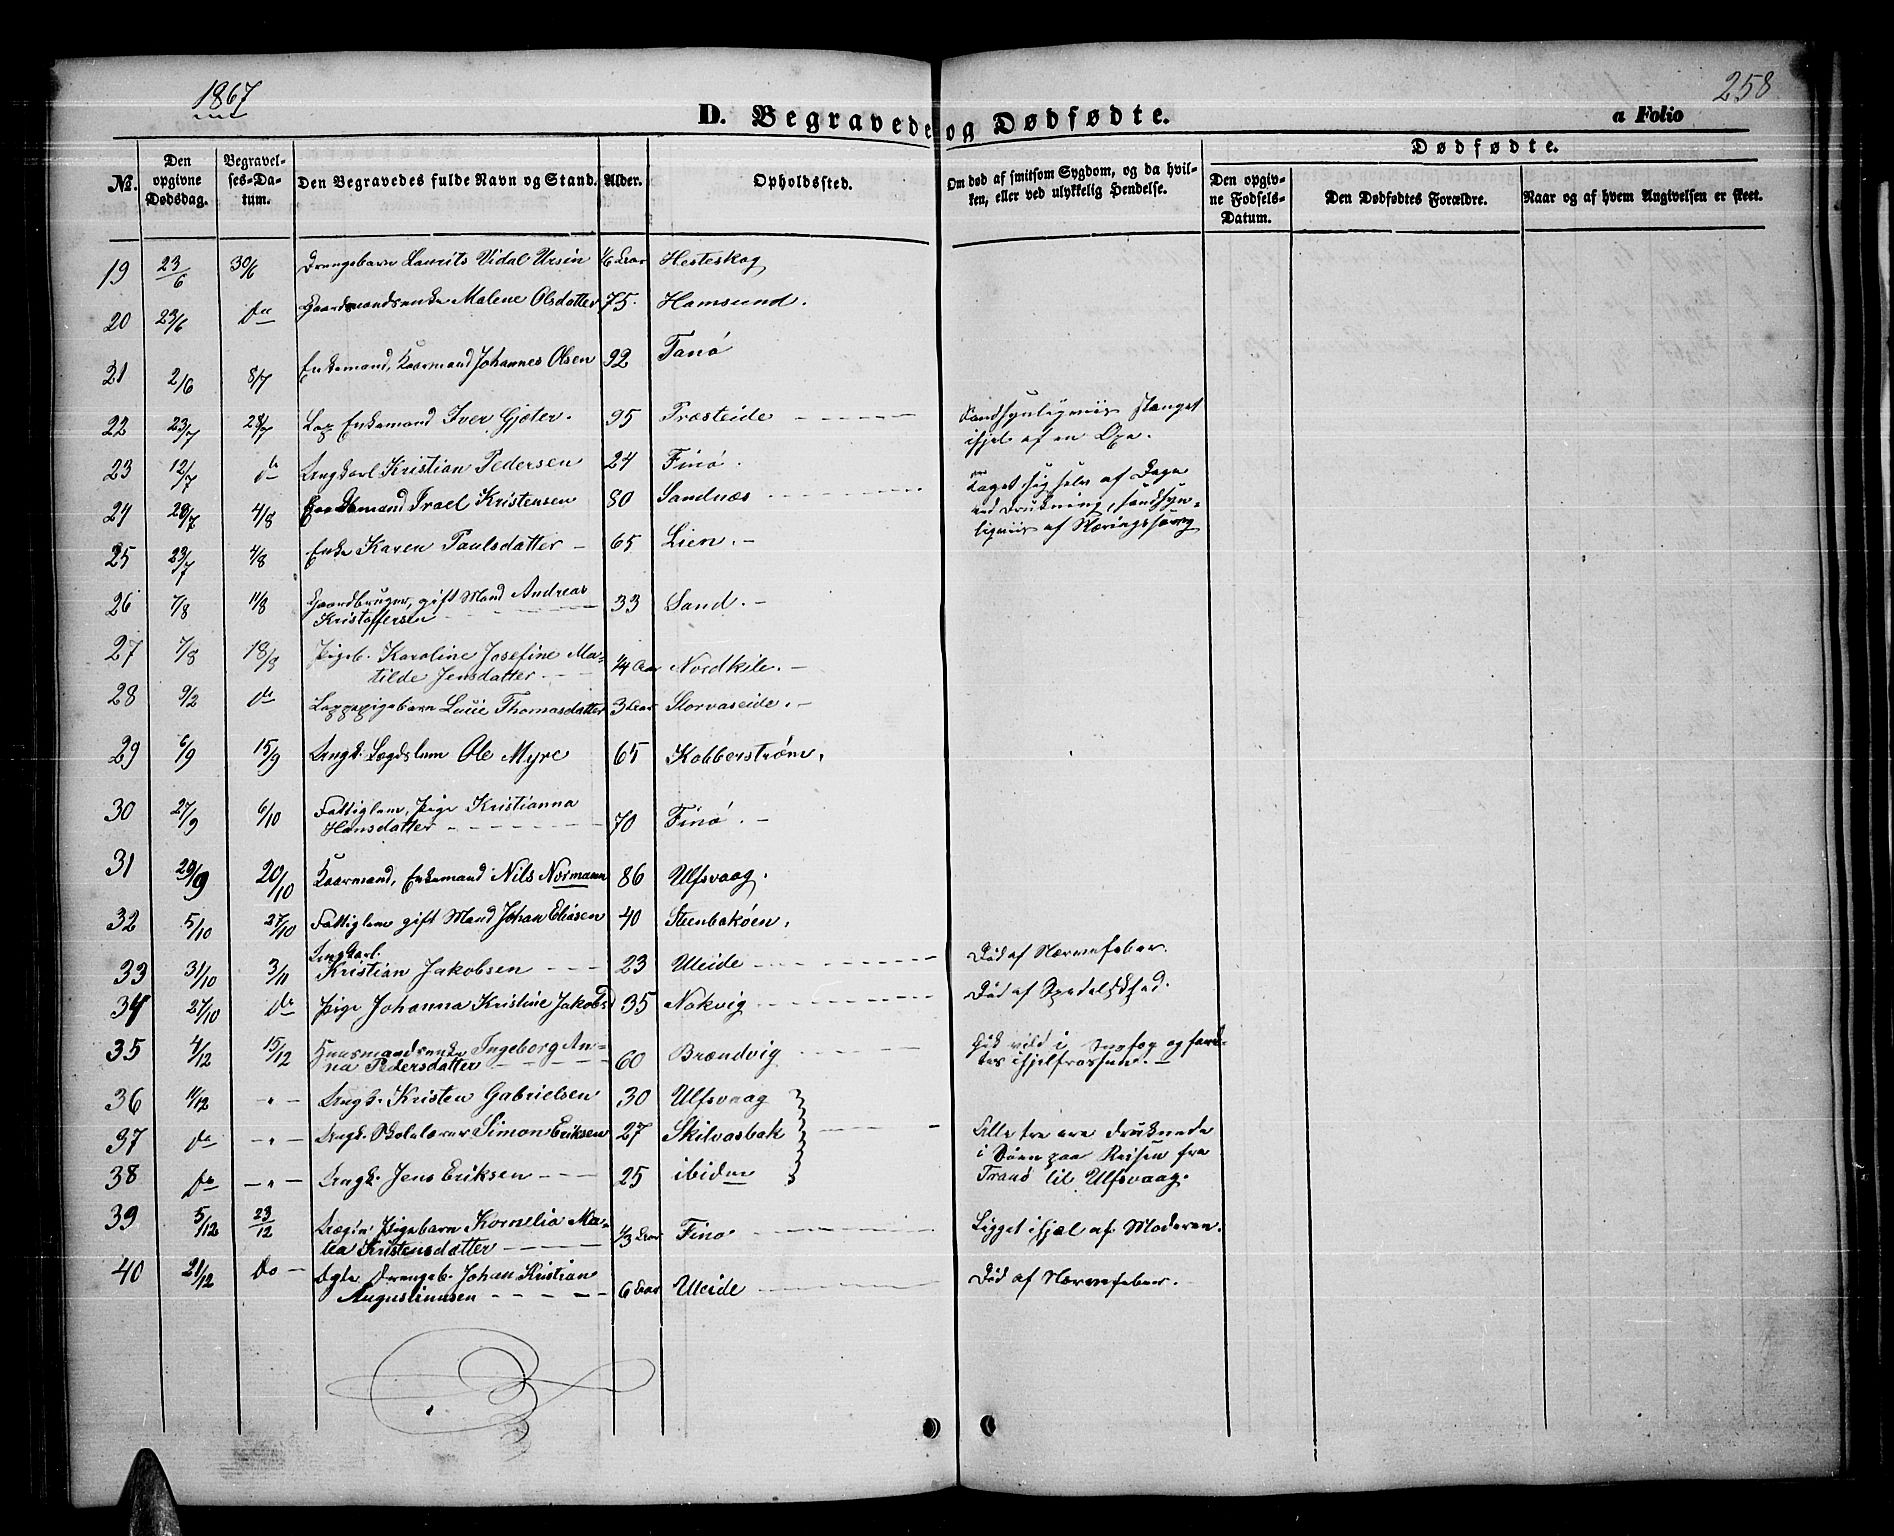 1867
258
D. Begravede og Dødfødte.
a Folio
Dødfødte.
No.
Den opgivne Dødsdag.
Begravelses-Datum.
Den Begravedes fulde Navn og Stand.
Alder.
Opholdssted.
Om død af smitsom Sygdom, og da hvilken, eller ved ulykkelig Hendelse.
Den opgivne Fødsels-Datum.
Den Dødfødtes Forældre.
Naar og af hvem Angivelsen er skeet.
19 23/6 30/6 Drengebarn Laurits Vidal Ursin 1/6 Aar Hesteskog
20 23/6 do Gaardmandsenke Malene Olsdatter 75. Hamsund.
21 2/6 8/7 Enkemand, Kaarmand Johannes Olsen 92 Tanø
22 23/7 28/7 Lap Enkemand Iver Gjæter. 95 Træsteide Sandsynligviis stanget
ihjel af en Oxe.
23 12/7 do Ungkarl Kristian Pedersen 24 Finø.
24 28/7 4/8 Gaardmand Israel Kristensen 80 Sandnæs Taget sig selv af Dage
ved Drukning, sandsyn-
ligviis af Næringssorg
25 23/7 4/8 Enke Karen Paulsdatter 65 Lien.
26 7/8 11/8 Gaardbruger, gift Mand Andreas
Kristoffersen 33 Sand.
27 7/8 18/8 Pigeb. Karoline Josefine Ma-
tilde Jensdatter. 1/4 Aar Nordkile.
28 9/2 do Lappepigebarn Lucie Thomasdatter 3 Aar Storvaseide.
29 6/9 15/9 Ungk. Lægdslem Ole Myre 65 Kobberstrøm.
30 27/9 6/10 Fattiglem, Pige Kristianna
Hansdatter 70 Finø.
31 29/9 20/10 Kaarmand, Enkemand Nils Normann 86 Ulfsvaag.
32 5/10 27/10 Fattiglem gift Mand Johan Eliasen 40 Steenbakøen.
33 31/10 3/11 Ungkarl.
Kristian Jakobsen 23 Uleide Død af Nervefeber.
34 27/10 do Pige Johanna Kristine Jakobsd 35 Nokvig Død af Spedalskhed.
35 4/12 15/12 Huusmandsenke Ingeborg An-
na Pedersdatter 60 Brændvig Gik vild i Snefog og fand-
tes ihjelfrossen.
36 11/12 -"- Ungk. Kristen Gabrielsen 30 Ulfsvaag
37 do -"- Ungk. Skolelærer Simon Eriksen 27 Skilvasbak Alle tre ere druknede
i Søen paa Reisen fra
38 do -"- Ungk. Jens Eriksen 25 ibidem Tranø til Ulfsvaag.
39 5/12 23/12 Uægte Pigebarn Kornelia Ma-
lea Kristensdatter 1/3 Aar Finø Ligget ihjæl af Moderen.
40 21/12 do Ægte Drengeb. Johan Kristian
Augustinusen 6 Aar Uleide Død af Nervefeber.